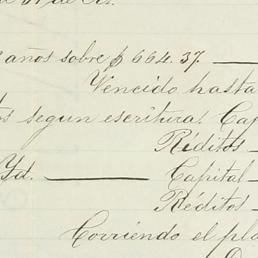 años sobre $ 664.37.
Vencido hasta
segun escritura. Cap
Réditos
Yd. Capital
Réditos
Corriendo el pla